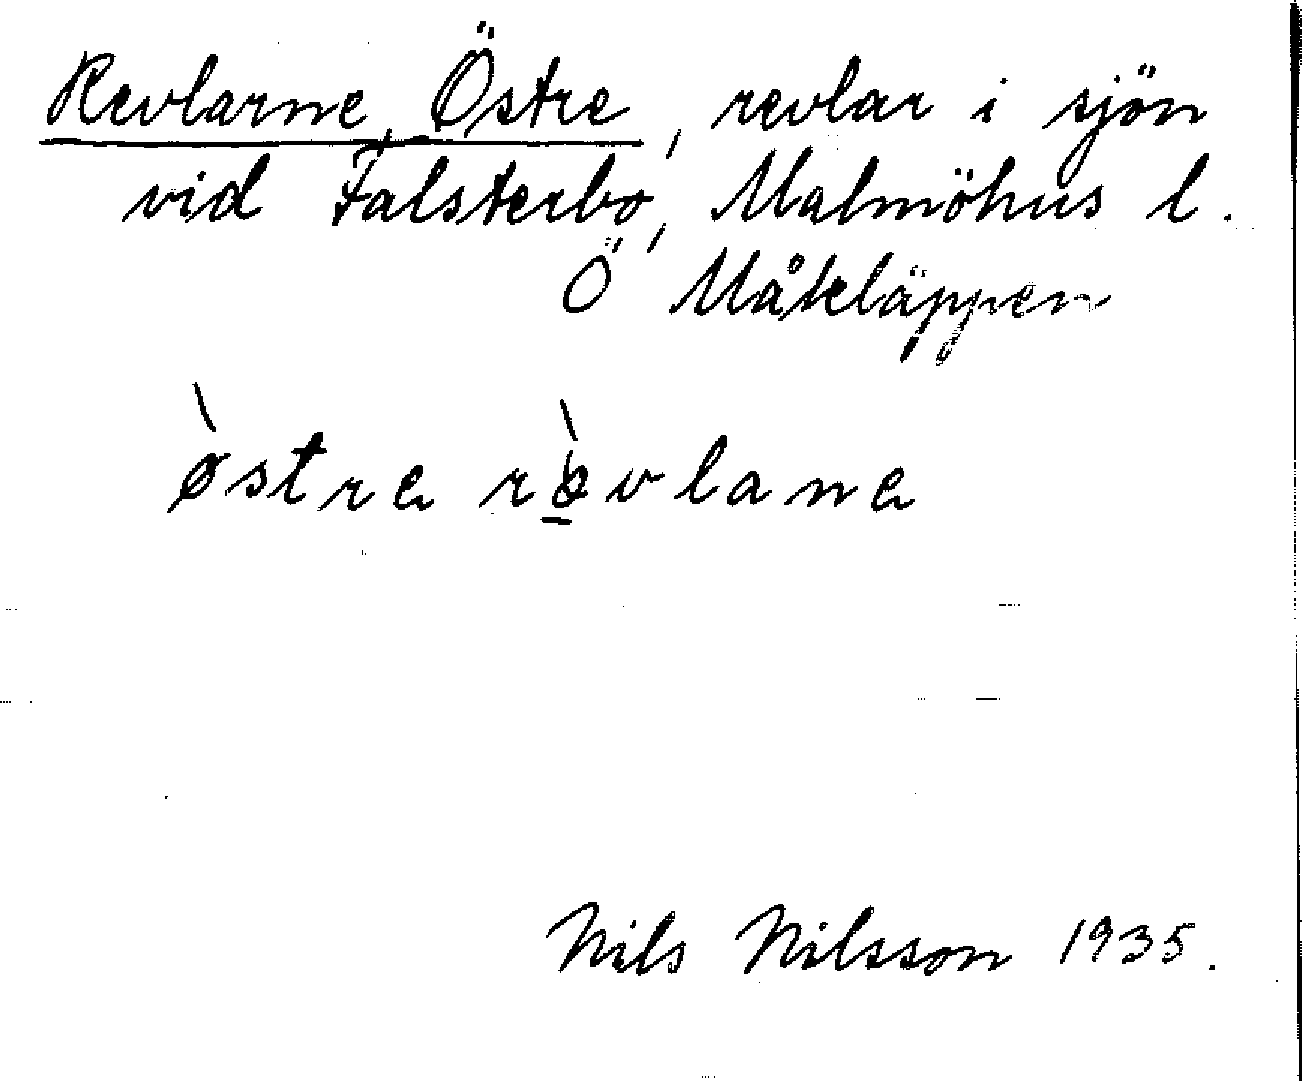 Revlarne, Östre, revlar i sjön
vid Falsterbo, Malmöhus l.
Ö Måkläppen
østrə rèvlanə
Nils Nilsson 1935.